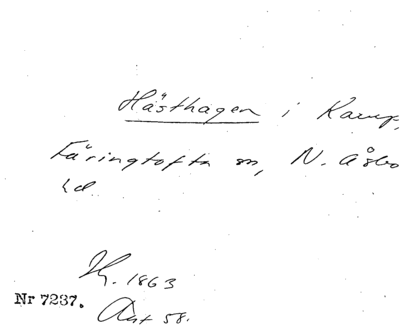 Hästhagen i Karup,
Färingtofta sn, N. Åsbo
hd
Hg. 1863
Nr 7237.
Ant 58.